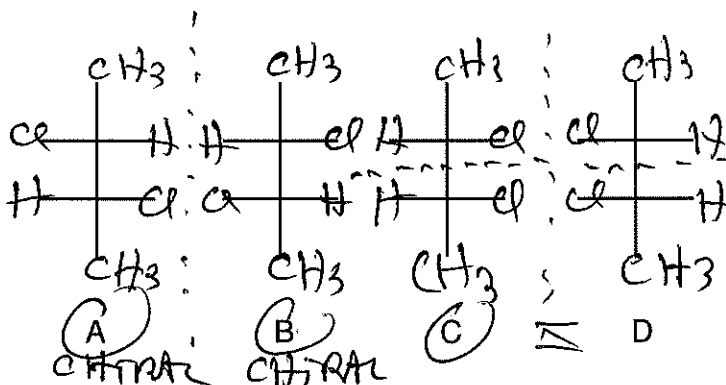 CH3 CH3 CH3 CH3
Cl H H Cl H Cl Cl H
H Cl Cl H H Cl Cl H
CH3 CH3 CH3 CH3
A B C ≡ D
CHIRAL CHIRAL